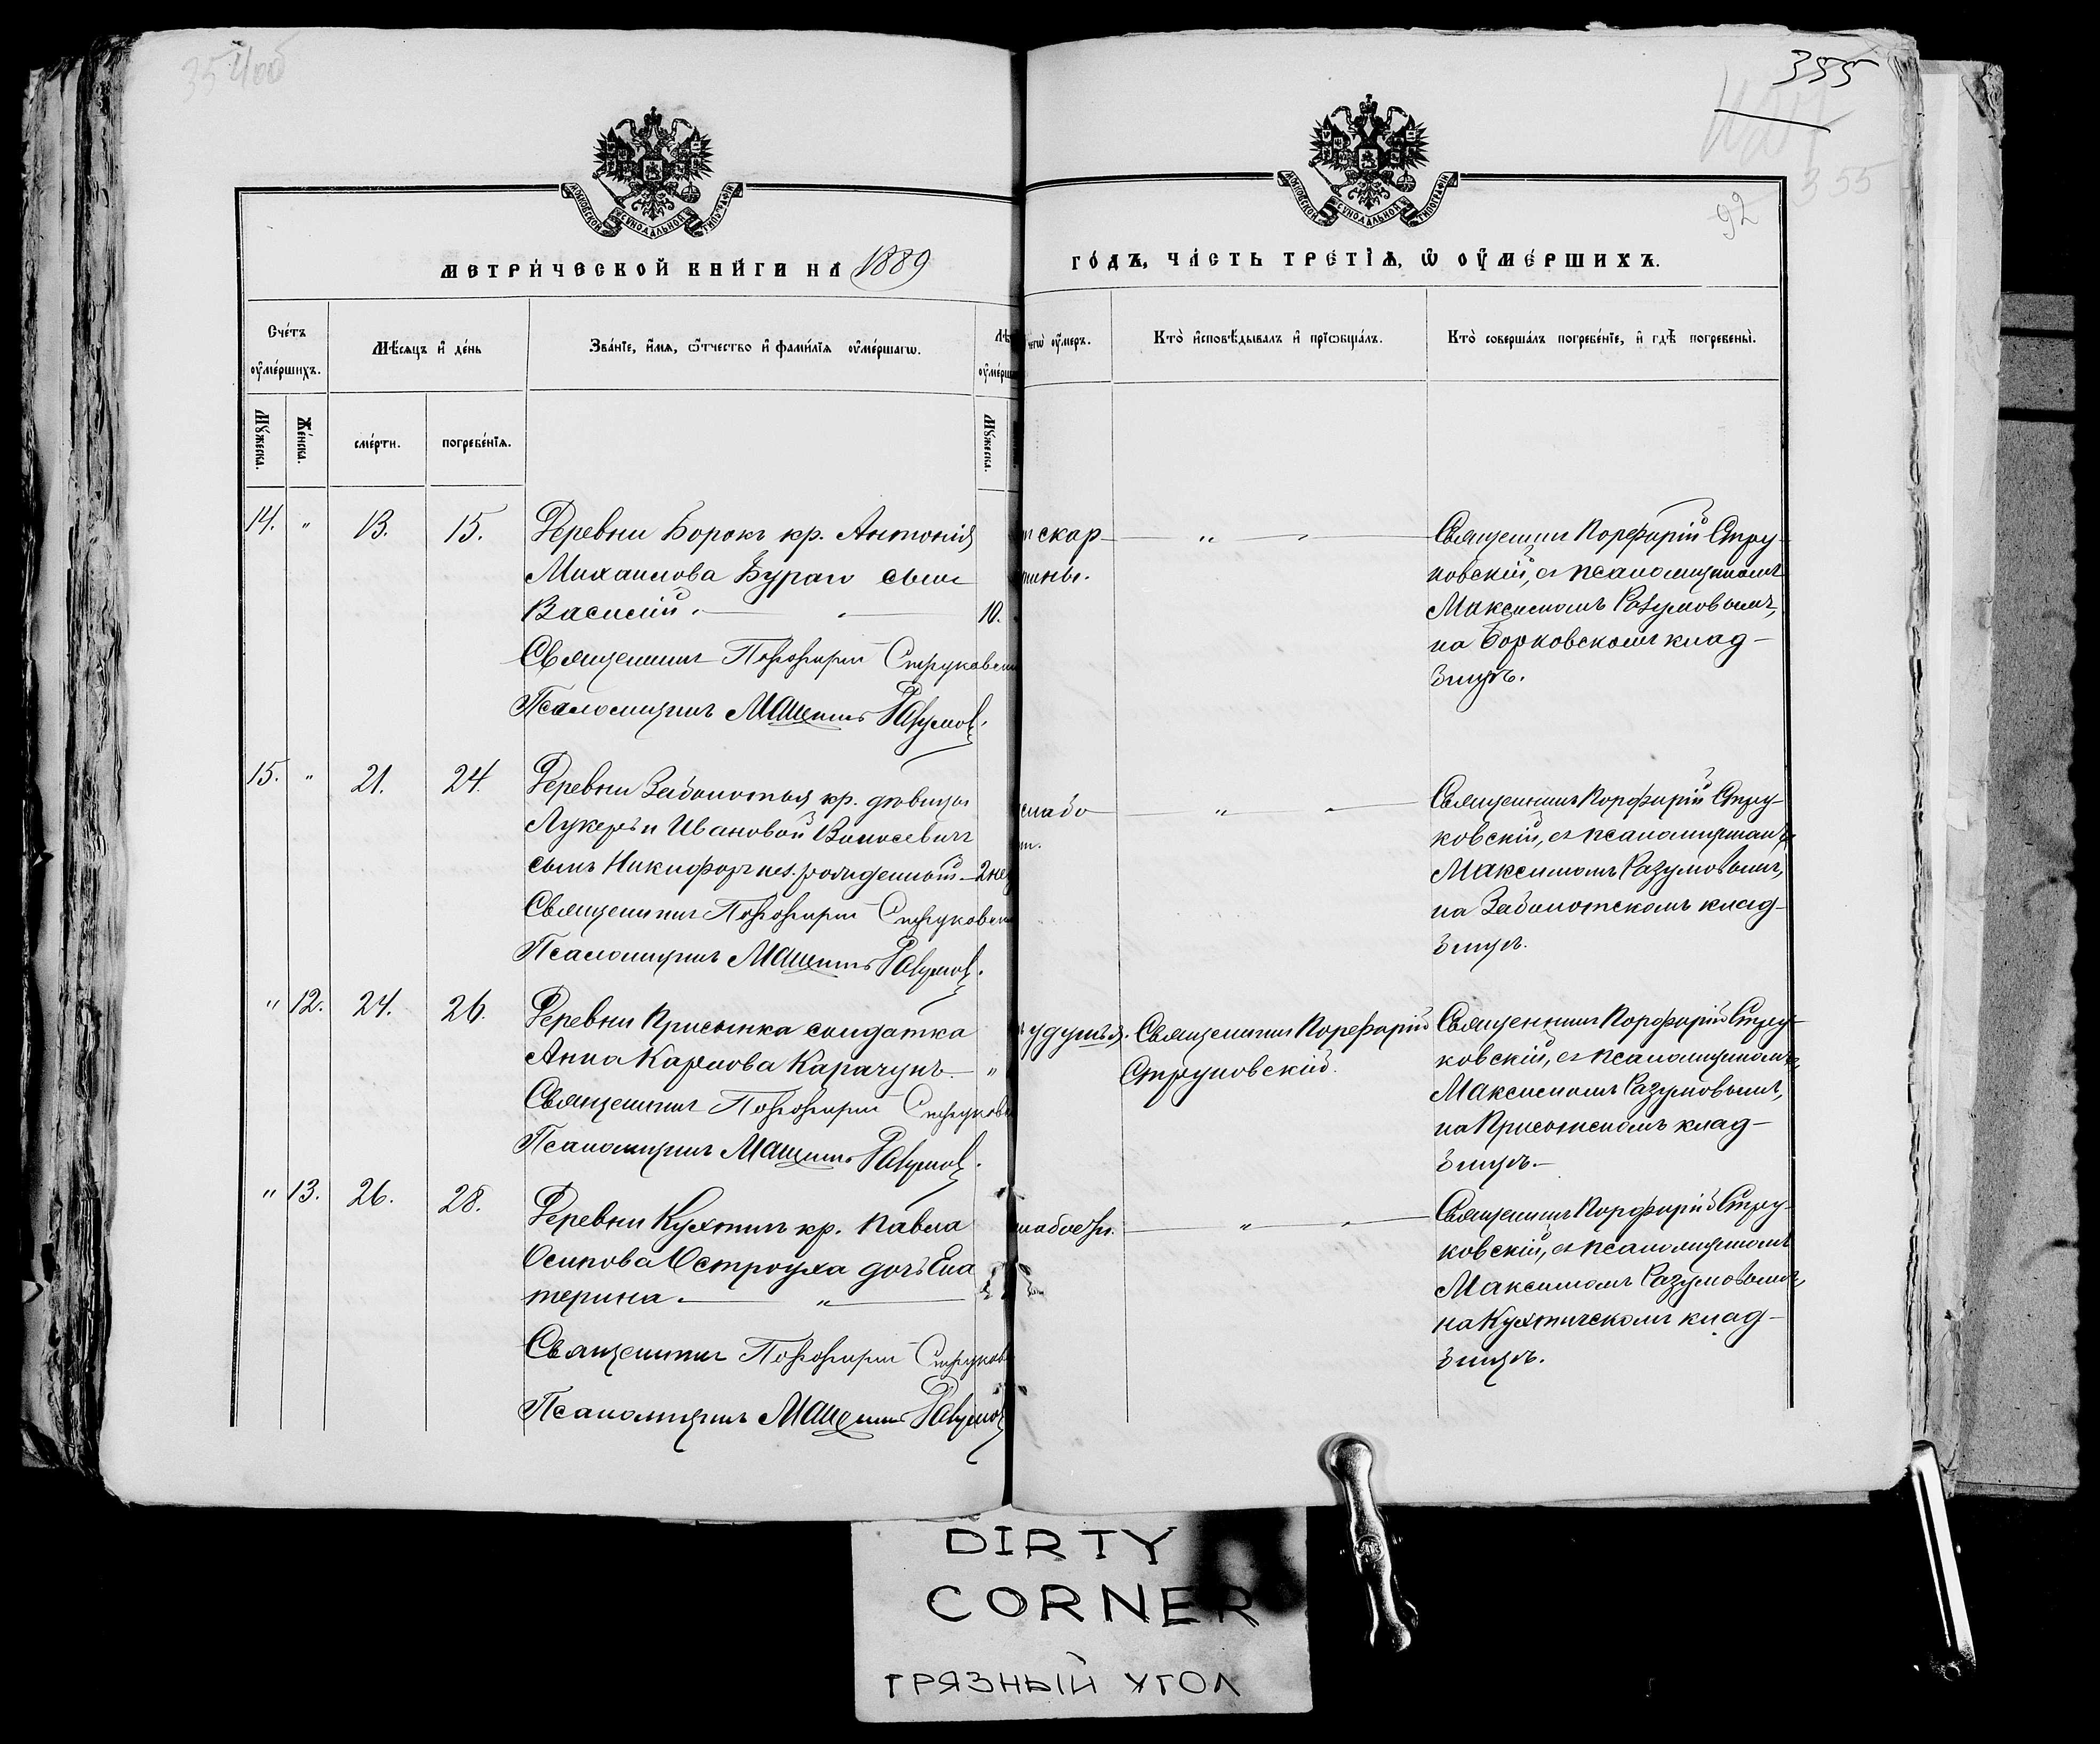 355
355
92
МОСКОВСКОЙ СѴНОДАЛЬНОЙ ТИПОГРАФІИ
МОСКОВСКОЙ СѴНОДАЛЬНОЙ ТИПОГРАФІИ
МЕТРИ́ЧЕСКОЙ КНИ́ГИ НА 1889
ГО́ДЪ, ЧА́СТЬ ТРЕ́ТІѦ, Ѡ ОУ҆МЕ́РШИХЪ.
Сче́тъ оу҆ме́ршихъ.
Мѣ́сяцъ и҆ де́нь
Зва́нїе, и҆́мѧ, ѻ҆́тчество и҆ фами́лїѧ оу҆ме́ршагѡ.
Лѣ
оу҆ме́рш
чегѡ̀ оу҆́меръ.
Кто̀ и҆сповѣ́дывалъ и҆ прїѡбща́лъ.
Кто̀ соверша́лъ погребе́нїе, и҆ гдѣ̀ погребены̀.
Мꙋ́жеска.
Же́нска.
сме́рти.
погребе́нїѧ.
Мꙋ́жеска.
14. " 13. 15. Деревни Борокъ кр. Антонія
Михаилова Бураго сынъ
Василій. 10.
Священникъ Порфирій Струковск
Псаломщикъ Максимъ Разумовъ.
скар
тины.
Священникъ Порфирій Стру-
ковскій, съ псаломщикомъ
Максимомъ Разумовымъ,
на Борковскомъ клад-
бищѣ.
15. " 21. 24. Деревни Заболотья кр. дѣвицы
Лукеріи Ивановой Волосевичъ
сынъ Никифоръ нез. рожденный 2 нед
Священникъ Порфирій Струковск
Псаломщикъ Максимъ Разумовъ.
слабо
т.
Священникъ Порфирій Стру-
ковскій, съ псаломщикомъ
Максимомъ Разумовымъ,
на Заболотскомъ клад-
бищѣ.
" 12. 24. 26. Деревни Присынка солдатка
Анна Карпова Карачунъ "
Священникъ Порфирій Струков
Псаломщикъ Максимъ Разумовъ.
удушья.
Священникъ Порфирій
Струковскій.
Священникъ Порфирій Стру-
ковскій, съ псаломщикомъ
Максимомъ Разумовымъ,
на клад-
бищѣ.
" 13. 26. 28. Деревни Кухтичъ кр. Павла
Осипова Остроуха дочь Ека
терина. "
Священникъ Порфирій Струков
Псаломщикъ Максимъ Разумов
Священникъ Порфирій Стру-
ковскій, съ псаломщикомъ
Максимомъ Разумовымъ,
на Кухтичскомъ клад-
бищѣ.
DIRTY
CORNER
ГРЯЗНЫЙ УГОЛ